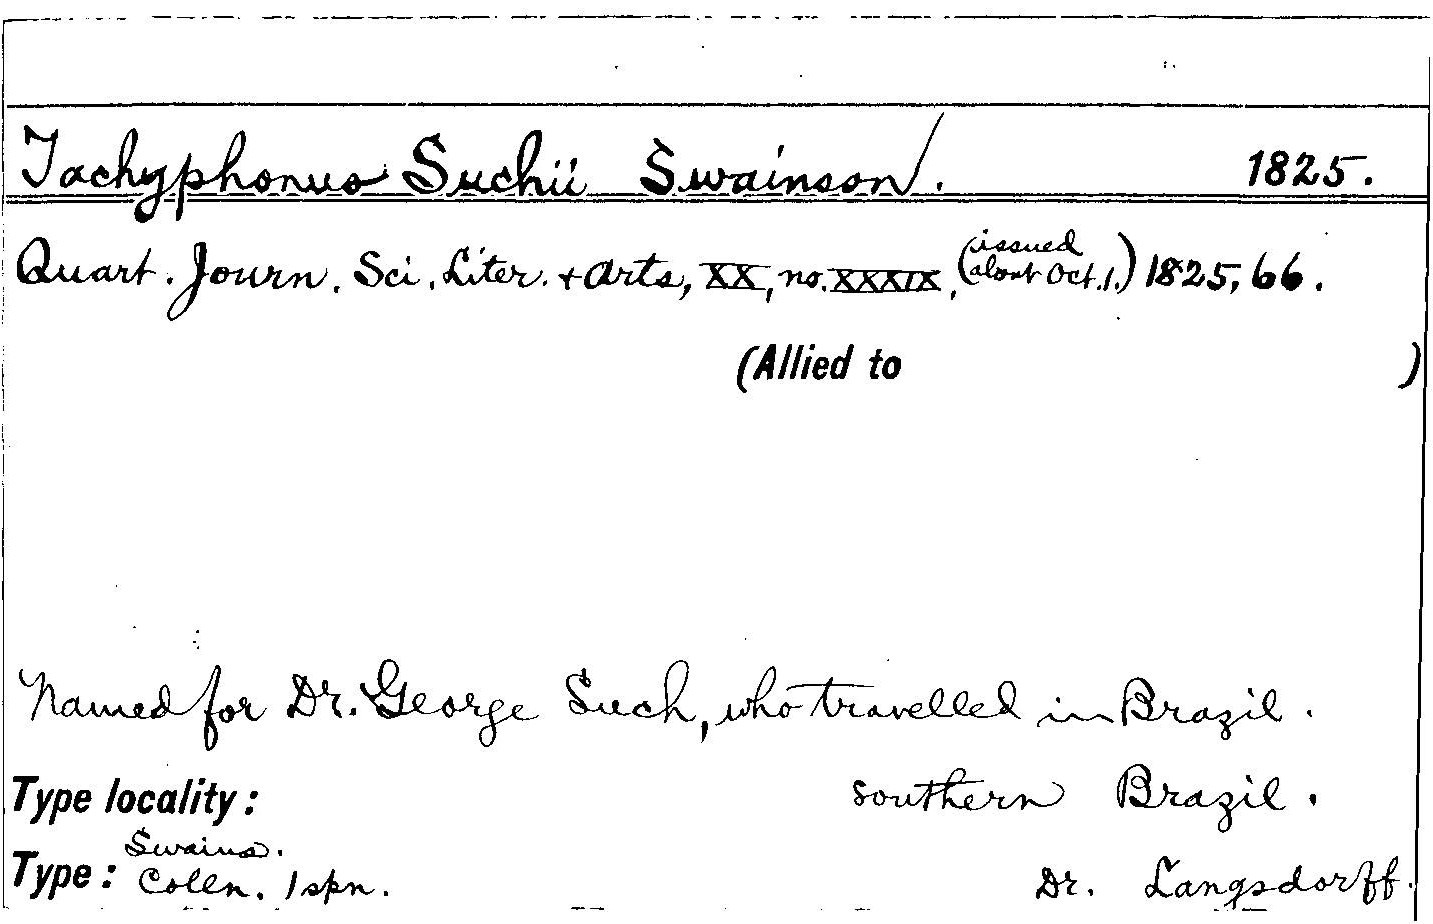 Tachyphonus Suchii Swainson. 1825.
Quart. Journ. Sci. Liter. + Arts, XX, no. XXXIX, (issued about Oct. 1.) 1825, 66.
(Allied to )
Named for Dr. George Such, who travelled in Brazil.
Type locality: southern Brazil.
Type: Swains. Colln. 1 spn. Dr. Langsdorff.